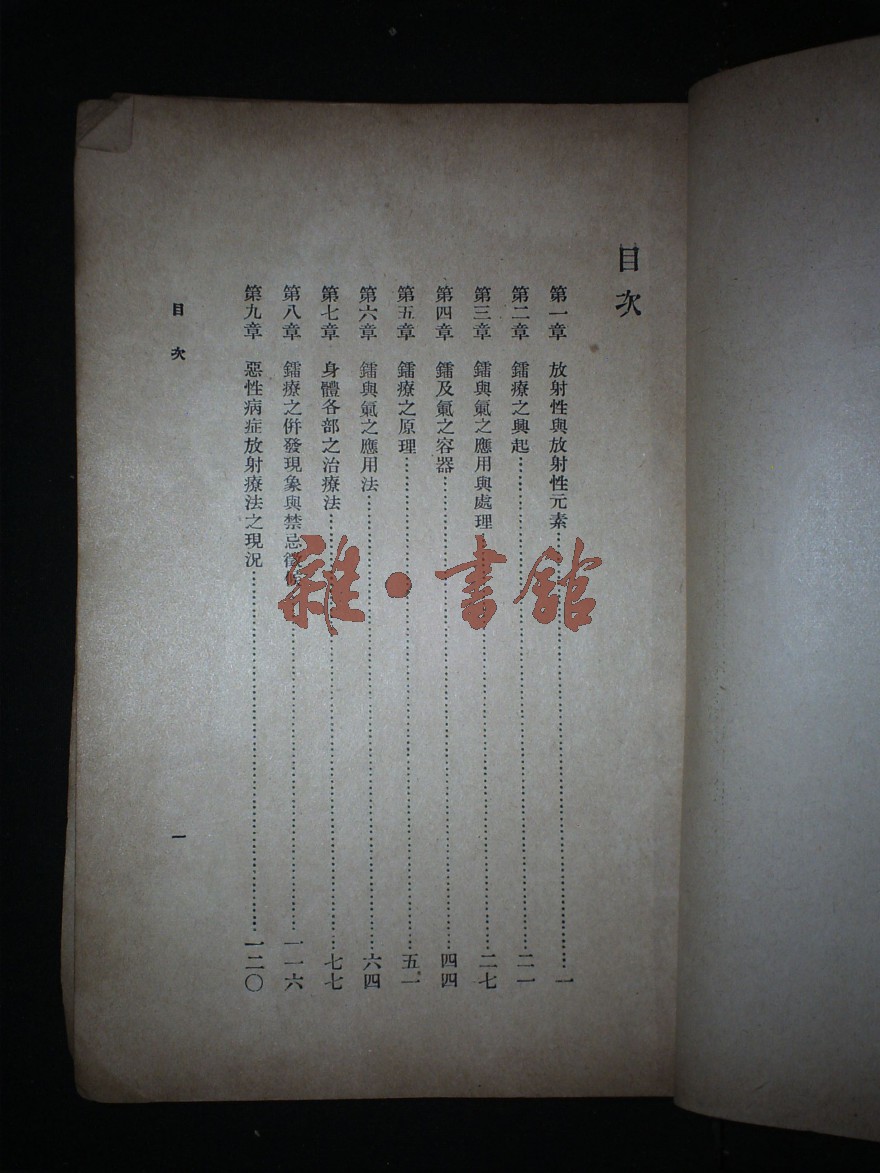 目次
第一章 放射性與放射性元素……一
第二章 鐳療之興起……二一
第三章 鐳與氣之應用與處理……二七
第四章 鐳及氣之容器……四四
第五章 鐳療之原理……五一
第六章 鐳與氣之應用法……六四
第七章 身體各部之治療法……七七
第八章 鐳療之併發現象與禁忌徵……一一六
第九章 惡性病症放射療法之現況……一二〇
目次
一
雜·書館